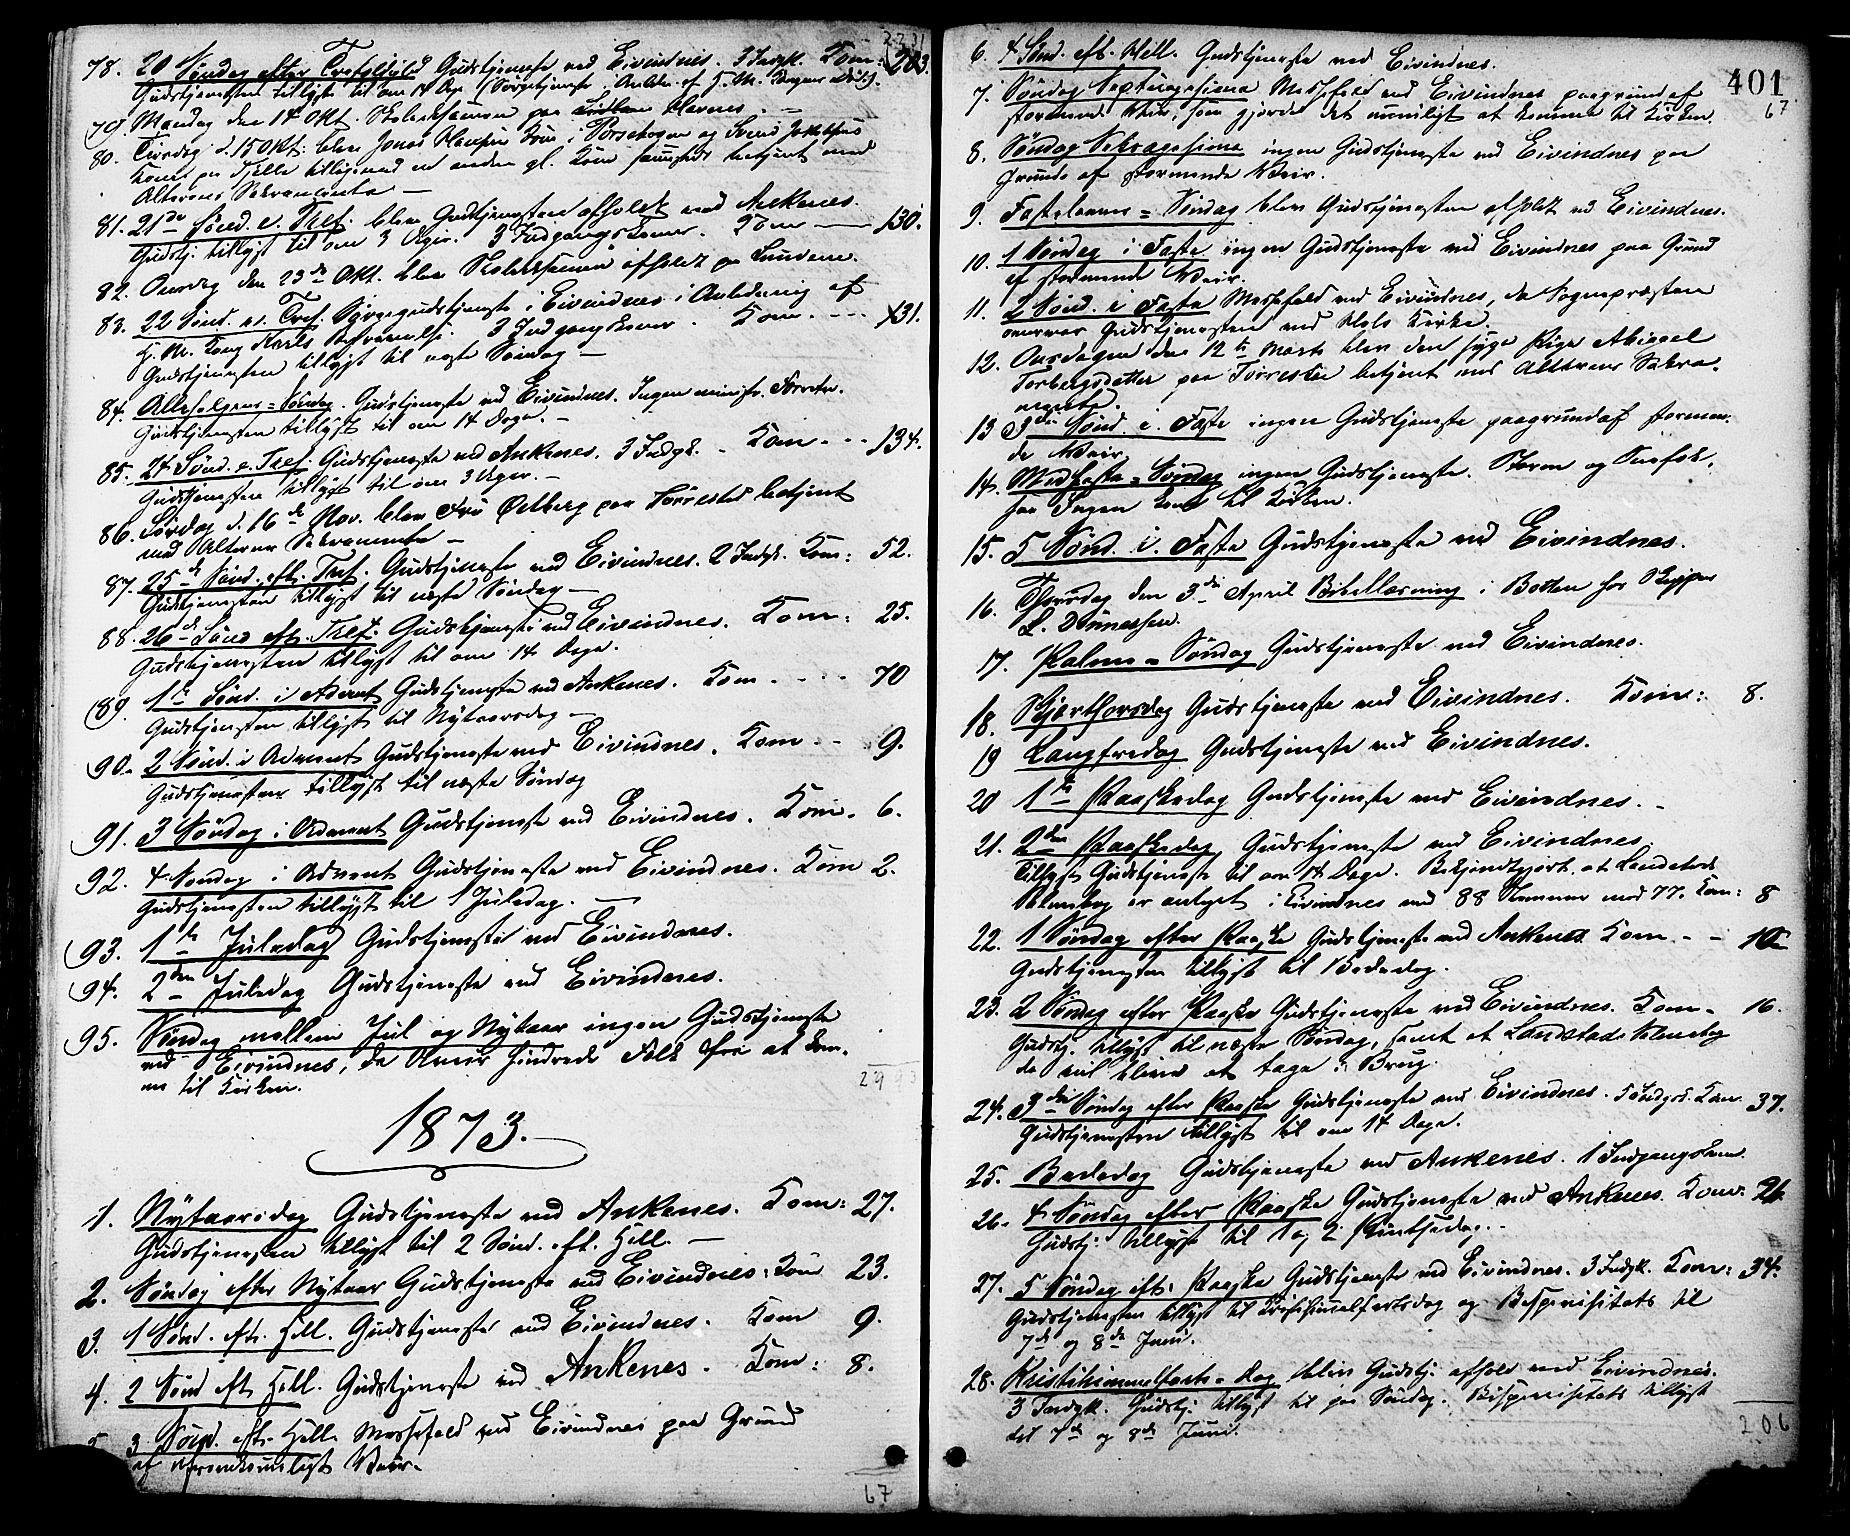 2231
78. 20 Søndag efter Trefoldighd Gudstjeneste ved Eivindnes. 3 Indgk. Kom: 203.
Gudstjenesten tillyst til om 14 Dage
79. Mandag den 14 Okt. Skoleexamen paa Havnes. —
80. Tirsdag d. 15 Okt: blev Jonas kone i Porsehogen og
kones paa Fjelle tilligemed en anden gl. Kone sammesteds betjent med
Alterens Sakramente —
81. 21de Sønd. e. Tref. blev Gudstjenesten afholdt ved Ankenes.
Gudstj. tillyst til om 3 Uger. 3 Indgangskoner. Kom — 130.
82. Onsdag den 23de Okt. blev Skoleexamen afholdt paa Lundene.
83. 22 Sønd. e. Tref. Sørgegudstjeneste i Eivindnes i Anledning af
H. M. Kong Karls 3 Indgangskoner. Kom. --- 131.
Gudstjenesten tillyst til næste Søndag —
84. Allehelgens=Søndag. Gudstjeneste ved Eivindnes. Ingen minist. Forretn.
Gudstjenesten tillyst til om 14 Dage. —
85. 24 Sønd. e. Tref. Gudstjeneste ved Ankenes. 3 Indgk. - Kom --- 134.
Gudstjenesten tillyst til om 3 Uger. —
86. Lørdag d. 16de Nov. blev Fru Østberg paa betjent
med Alterens Sakramente —
87. 25de Sønd. eft. Tref. Gudstjeneste ved Eivindnes. 2 Indgk. Kom: 52.
Gudstjenesten tillyst til næste Søndag —
88. 26de Sønd eft. Tref. Gudstjeneste ved Eivindnes. Kom: 25.
Gudstjenesten tillyst til om 14 Dage.
89. 1ste Sønd. i Advent Gudstjeneste ved Ankenes. Kom ---- 70
Gudstjenesten tillyst til Nytaarsdag —
90. 2 Sønd. i Advent Gudstjeneste ved Eivindnes. Kom -- 9.
Gudstjenesten tillyst til næste Søndag
91. 3 Søndag i Advent Gudstjeneste ved Eivindnes. Kom. 6.
92. 4 Søndag i Advent Gudstjeneste ved Eivindnes. Kom 2.
Gudstjenesten tillyst til 1 Juledag. —
93. 1ste Juledag Gudstjeneste ved Eivindnes.
94. 2den Juledag Gudstjeneste ved Eivindnes.
95. Søndag mellem Jul og Nytaar ingen Gudstjeneste
ved Eivindnes, da Uveir hindrede Folk fra at kom-
me til Kirken.
1873.
1. Nytaarsdag Gudstjeneste ved Ankenes. Kom: 27.
Gudstjenesten tillyst til 2 Sønd. eft. Hell. —
2. Søndag efter Nytaar Gudstjeneste ved Eivindnes: Kom 23.
3. 1 Sønd. eft. Hell. Gudstjeneste ved Eivindnes. Kom 9.
4. 2 Sønd eft Hell. Gudstjeneste ved Ankenes. Kom: 8.
5. 3 Sønd. eft. Hell. Messefald ved Eivindnes paa Grund
af Veir.
67
401
67
6. 4 Sønd. eft. Hell. Gudstjeneste ved Eivindnes.
7. Søndag Septuagesima Messefald ved Eivindnes paagrundaf
stormende Veir, som gjorde det umuligt at komme til Kirken.
8. Søndag Sexagesima ingen Gudstjeneste ved Eivindnes paa
Grund af stormende Veir.
9. Fastelavns=Søndag blev Gudstjenesten afholdt ved Eivindnes.
10. 1 Søndag i Faste ingen Gudstjeneste ved Eivindnes paa Grund
af stormende Veir.
11. 2 Sønd. i Faste Messefald ved Eivindnes, da Sognepræsten
overvar Gudstjenesten ved Hols Kirke.
12. Onsdagen den 12te Marts blev den syge Pige Abigael
Torbergsdatter paa betjent med Alterens Sakra-
mente.
13 3die Sønd. i Faste ingen Gudstjeneste paagrundaf stormen-
de Veir.
14. Midfaste=Søndag ingen Gudstjeneste. Storm og Snefok,
saa Ingen kom til Kirken.
15. 5 Sønd. i Faste Gudstjeneste ved Eivindnes.
16. Thorsdag den 3die April Bibellæsning i Botten for Skipper
L. Dønnessen.
17. Palme=Søndag Gudstjeneste ved Eivindnes.
18. Skjærthorsdag Gudstjeneste ved Eivindnes. Kom: 8.
19 Langfredag Gudstjeneste ved Eivindnes.
20 1ste Paaskedag Gudstjeneste ved Eivindnes. -
21. 2den Paaskedag Gudstjeneste ved Eivindnes.
Tillyst Gudstjeneste til om 14 Dage. Bekjendtgjort, at Landstads
Salmebog er antaget i Eivindnes med 88 Stemmer mod 77. Kom: 8
22. 1 Søndag efter Paaske Gudstjeneste ved Ankenes Kom. - - 10
Gudstjenesten tillyst til Bededag.
23. 2 Søndag efter Paaske Gudstjeneste ved Eivindnes. Kom - 16.
Gudstj. tillyst til næste Søndag, samt at Landstads Salmebog
da vil blive at tage i Brug.
24. 3die Søndag efter Paaske Gudstjeneste ved Eivindnes. Kom 37.
Gudstjenesten tillyst til om 14 Dage.
25. Bededag Gudstjeneste ved Ankenes. 1 Indgangskone.
26. 4 Søndag efter Paaske Gudstjeneste ved Ankenes. Kom: 26.
Gudstj: tillyst til 1 og 2 Pintsedag. -
27. 5 Søndag eft. Paaske Gudstjeneste ved Eivindnes. 3 Indgk. Kom: 34.
Gudstjenesten tillyst til Kristihimmelfartsdag og Bispevisitats til
7de og 8de Juni.
28. Kristihimmelfarts=Dag blev Gudstj: afholdt ved Eivindnes.
3 Indgk. Gudstj: tillyst til paa Søndag. Bispevisitats tillyst
til 7de og 8de Juni.
206